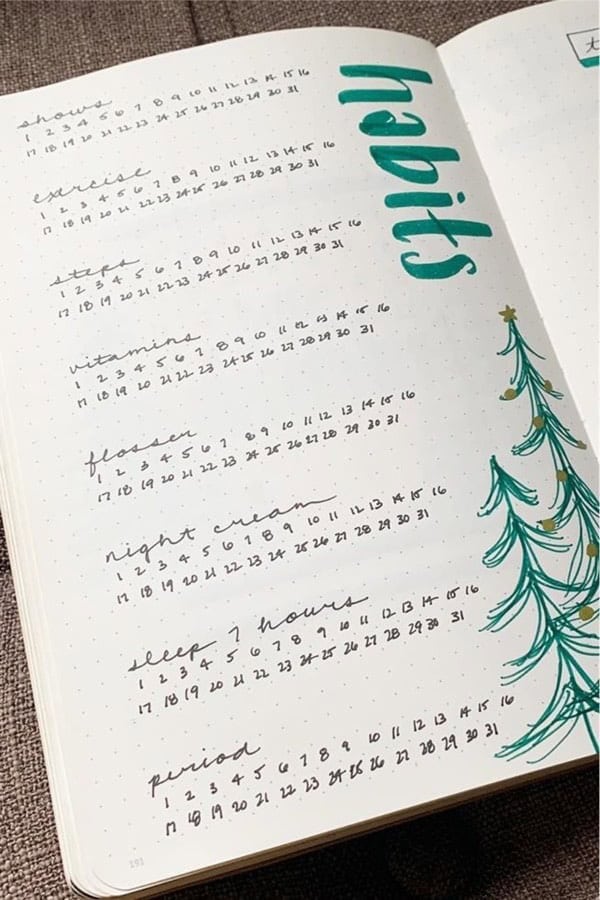 habits
shows
1 2 3 4 5 6 7 8 9 10 11 12 13 14 15 16
17 18 19 20 21 22 23 24 25 26 27 28 29 30 31
exercise
1 2 3 4 5 6 7 8 9 10 11 12 13 14 15 16
17 18 19 20 21 22 23 24 25 26 27 28 29 30 31
steps
1 2 3 4 5 6 7 8 9 10 11 12 13 14 15 16
17 18 19 20 21 22 23 24 25 26 27 28 29 30 31
vitamins
1 2 3 4 5 6 7 8 9 10 11 12 13 14 15 16
17 18 19 20 21 22 23 24 25 26 27 28 29 30 31
flosser
1 2 3 4 5 6 7 8 9 10 11 12 13 14 15 16
17 18 19 20 21 22 23 24 25 26 27 28 29 30 31
night cream
1 2 3 4 5 6 7 8 9 10 11 12 13 14 15 16
17 18 19 20 21 22 23 24 25 26 27 28 29 30 31
sleep 7 hours
1 2 3 4 5 6 7 8 9 10 11 12 13 14 15 16
17 18 19 20 21 22 23 24 25 26 27 28 29 30 31
period
1 2 3 4 5 6 7 8 9 10 11 12 13 14 15 16
17 18 19 20 21 22 23 24 25 26 27 28 29 30 31
191
t